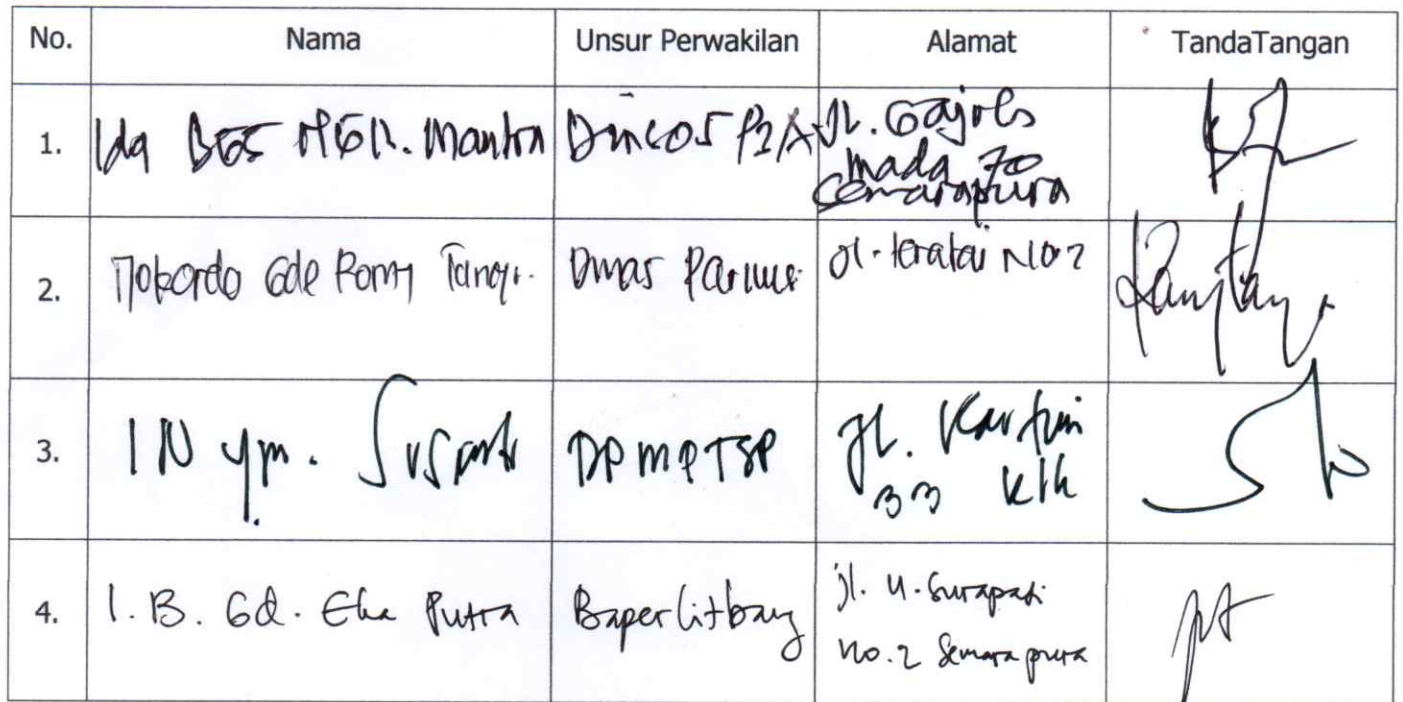 No. Nama Unsur Perwakilan Alamat TandaTangan
1. Ida BGS NGR. Mantra Dinsos P2A Jl. Gajah
mada 70
Semarapura
2. Tjokorda Gde Romy Tanaya. Dinas Jl. teratai No 2
3. I Nym. Susanto DPMPTSP Jl. Kartini
33 Klk
4. I. B. Gd. Eka Putra Baperlitbang Jl. U. Surapati
no. 2 Semarapura